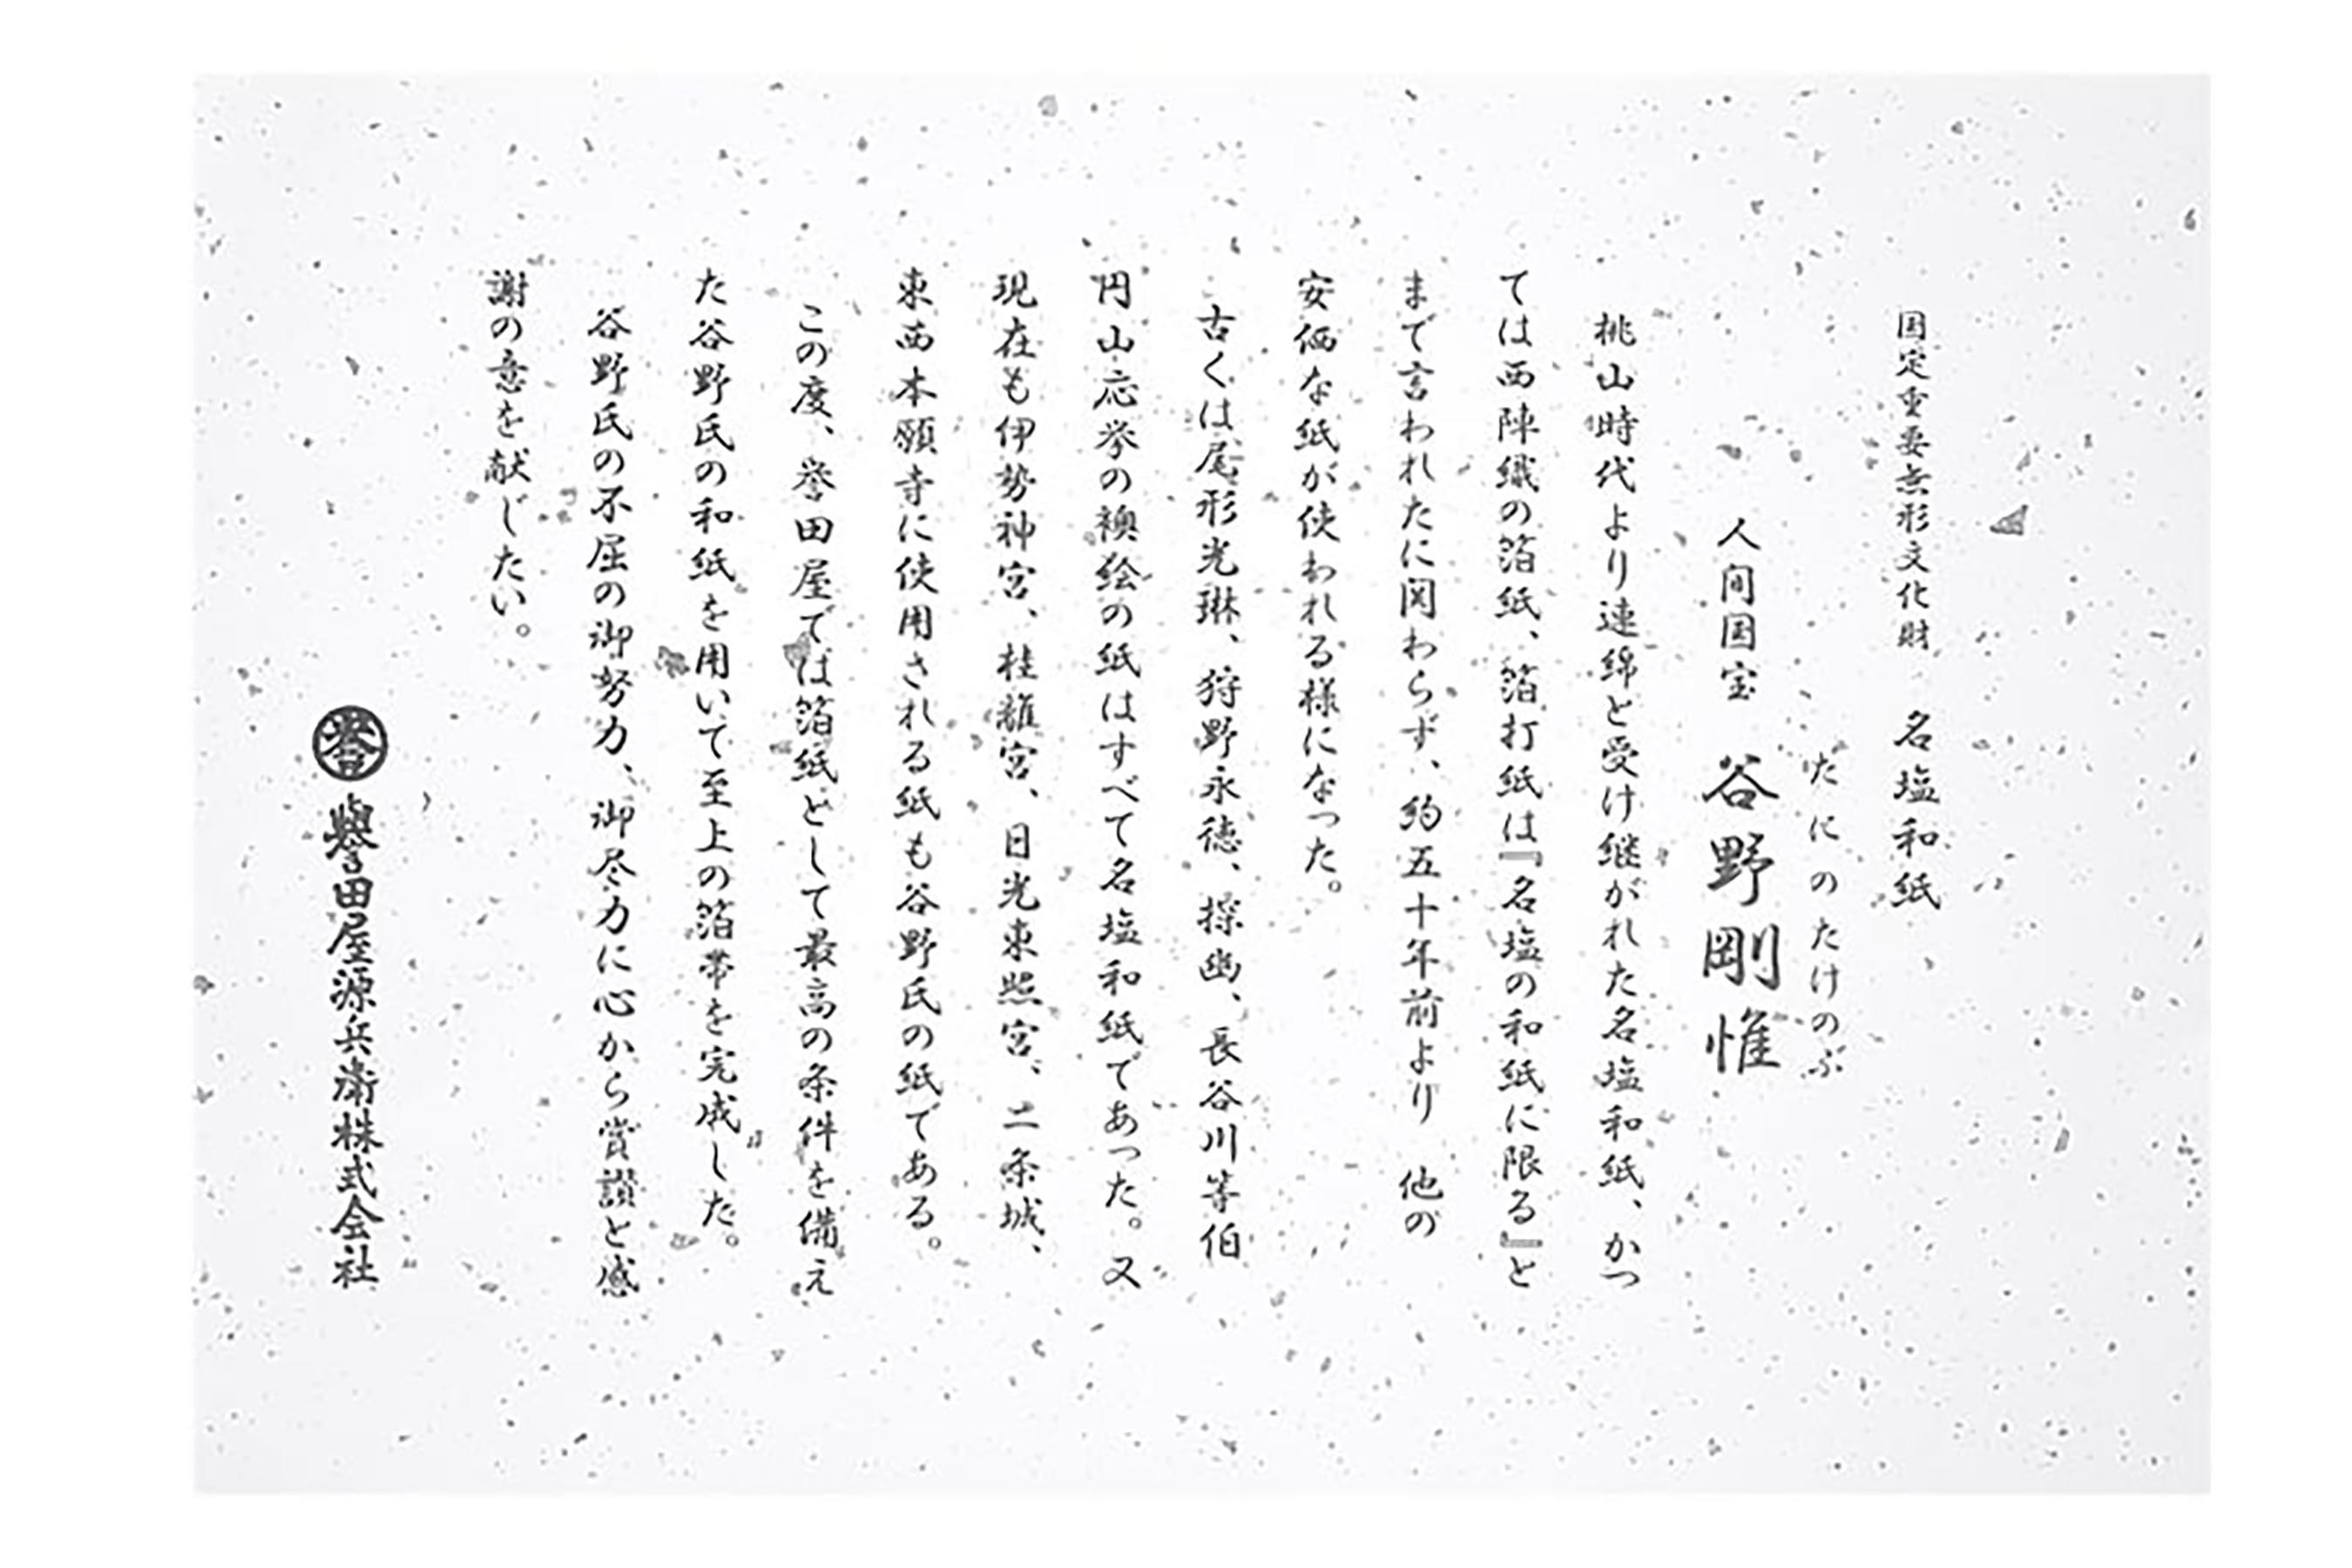 国定重要無形文化財　名塩和紙
たにのたけのぶ
人間国宝　谷野剛惟
桃山時代より連綿と受け継がれた名塩和紙、かつ
ては西陣織の箔紙、箔打紙は『名塩の和紙に限る』と
まで言われたに関わらず、約五十年前より　他の
安価な紙が使われる様になった。
古くは尾形光琳、狩野永徳、探幽、長谷川等伯
円山応挙の襖絵の紙はすべて名塩和紙であった。又
現在も伊勢神宮、桂離宮、日光東照宮、二条城、
東西本願寺に使用される紙も谷野氏の紙である。
この度、誉田屋では箔紙として最高の条件を備え
た谷野氏の和紙を用いて至上の箔帯を完成した。
谷野氏の不屈の御努力、御尽力に心から賞讃と感
謝の意を献じたい。
誉 譽田屋源兵衛株式会社